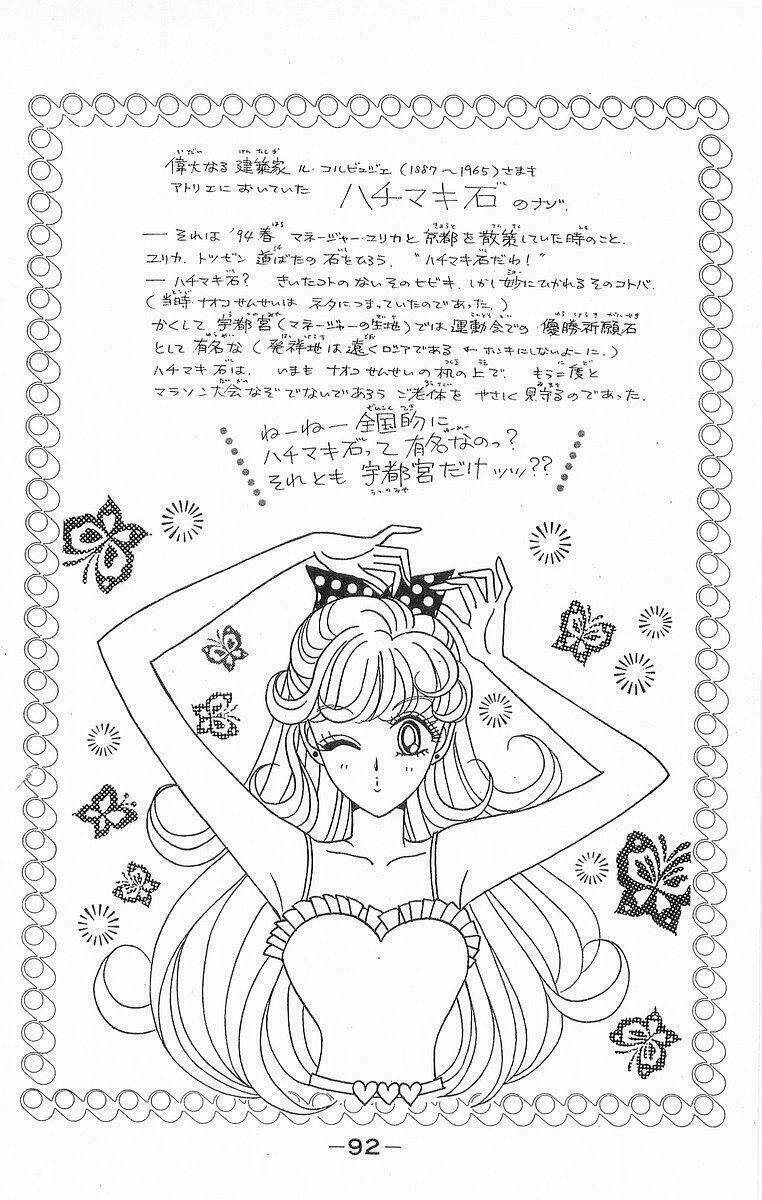 偉大なる 建築家 ル・コルビュジェ (1887〜1965)さまも
アトリエに おいていた ハチマキ石 のナゾ.
― それは '94春 マネージャー・ユリカと 京都を散策していた時のこと.
ユリカ、トツゼン 道ばたの 石をひろう. “ハチマキ石だわ!”
― ハチマキ石? きいたコトの ないそのヒビキ. しかし妙にひかれる そのコトバ.
(当時 ナオコせんせいは ネタにつまっていたのであった.)
かくして 宇都宮(マネージャーの生地)では 運動会での 優勝祈願石
として 有名な (発祥地は遠くロシアである ← ホンキにしないよーに.)
ハチマキ石は. いまも ナオコ せんせいの 机の上で. もう二度と
マラソン大会なぞ でないであろう ご老体を やさしく 見守るのであった.
ねーねー 全国的に
ハチマキ石って 有名なのっ?
それとも 宇都宮だけッッッ??
―92―